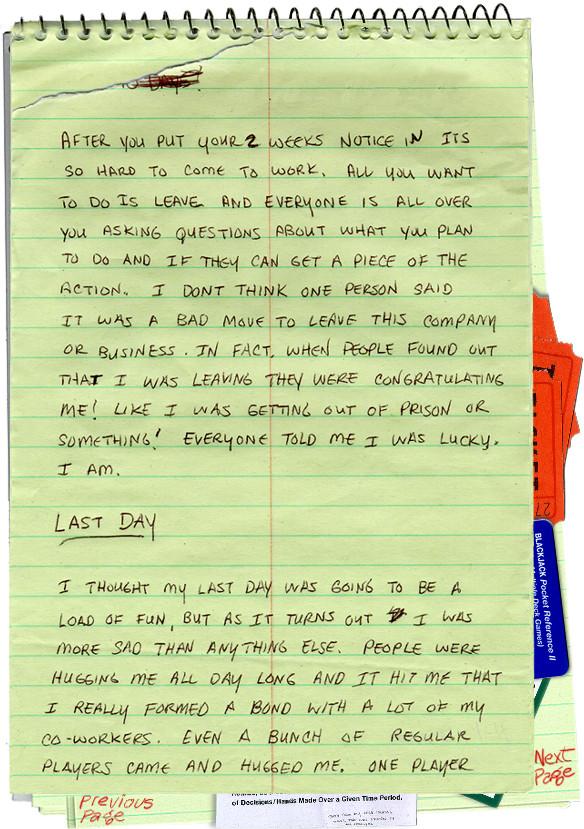 AFTER YOU PUT YOUR 2 WEEKS NOTICE IN ITS
SO HARD TO COME TO WORK. ALL YOU WANT
TO DO IS LEAVE AND EVERYONE IS ALL OVER
YOU ASKING QUESTIONS ABOUT WHAT YOU PLAN
TO DO AND IF THEY CAN GET A PIECE OF THE
ACTION. I DONT THINK ONE PERSON SAID
IT WAS A BAD MOVE TO LEAVE THIS COMPANY
OR BUSINESS. IN FACT, WHEN PEOPLE FOUND OUT
THAT I WAS LEAVING THEY WERE CONGRATULATING
ME! LIKE I WAS GETTING OUT OF PRISON OR
SOMETHING! EVERYONE TOLD ME I WAS LUCKY.
I AM.
LAST DAY
I THOUGHT MY LAST DAY WAS GOING TO BE A
LOAD OF FUN, BUT AS IT TURNS OUT I WAS
MORE SAD THAN ANYTHING ELSE. PEOPLE WERE
HUGGING ME ALL DAY LONG AND IT HIT ME THAT
I REALLY FORMED A BOND WITH A LOT OF MY
CO-WORKERS. EVEN A BUNCH OF REGULAR
PLAYERS CAME AND HUGGED ME. ONE PLAYER
TICKET
27
BLACKJACK Pocket Reference II
Multiple Deck Games)
Next
Page
Previous
Page
of Decisions/Hands Made Over a Given Time Period.